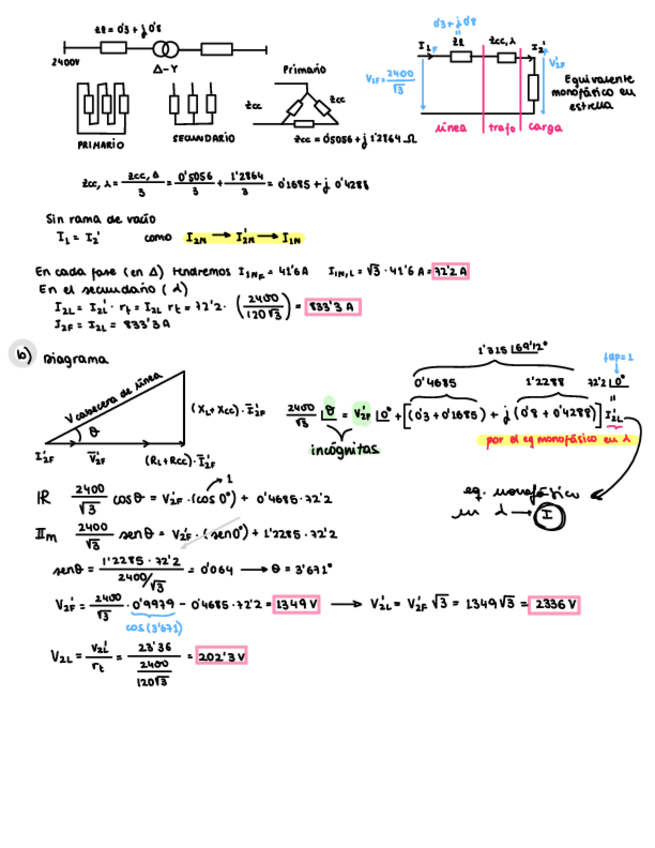 Zl = 0'3 + j 0'8
2400V
Δ-Y
PRIMARIO
SECUNDARIO
Primario
Zcc
Zcc
Zcc = 0'5056 + j 1'2864 Ω
0'3 + j 0'8
I1F
Zl
Zcc,λ
I2'
V1F = 2400/√3
V2F'
línea
trafo
carga
Equivalente monofásico en estrella
Zcc,λ = Zcc,Δ/3 = 0'5056/3 + 1'2864/3 = 0'1685 + j 0'4288
Sin rama de vacío
I1 = I2' como I2N → I2N' → I1N
En cada fase (en Δ) tendremos I1NF = 41'6 A I1N,L = √3 · 41'6 A = 72'2 A
En el secundario (λ)
I2L = I2L' · rt = I2L rt = 72'2 · (2400/120√3) = 833'3 A
I2F = I2L = 833'3 A
b) Diagrama
V cabecera de línea
θ
I2F'
V2F'
(RL + Rcc) · I2F'
(XL + Xcc) · I2F'
1'315 |69'12°
fdp=1
0'4685
1'2288
72'2 |0°
2400/√3 |θ = V2F' |0° + [(0'3 + 0'1685) + j (0'8 + 0'4288)] I2L'
incógnitas
por el eq monofásico en λ
eq. monofásico
en λ → I
1
IR 2400/√3 cosθ = V2F' · (cos 0°) + 0'4685 · 72'2
IIm 2400/√3 senθ = V2F' · (sen 0°) + 1'2285 · 72'2
senθ = 1'2285 · 72'2 / 2400/√3 = 0'064 → θ = 3'671°
V2F' = 2400/√3 · 0'9979 - 0'4685 · 72'2 = 1349 V → V2L' = V2F' √3 = 1349√3 = 2336 V
cos(3'671)
V2L = V2L'/rt = 23'36 / 2400/120√3 = 202'3 V